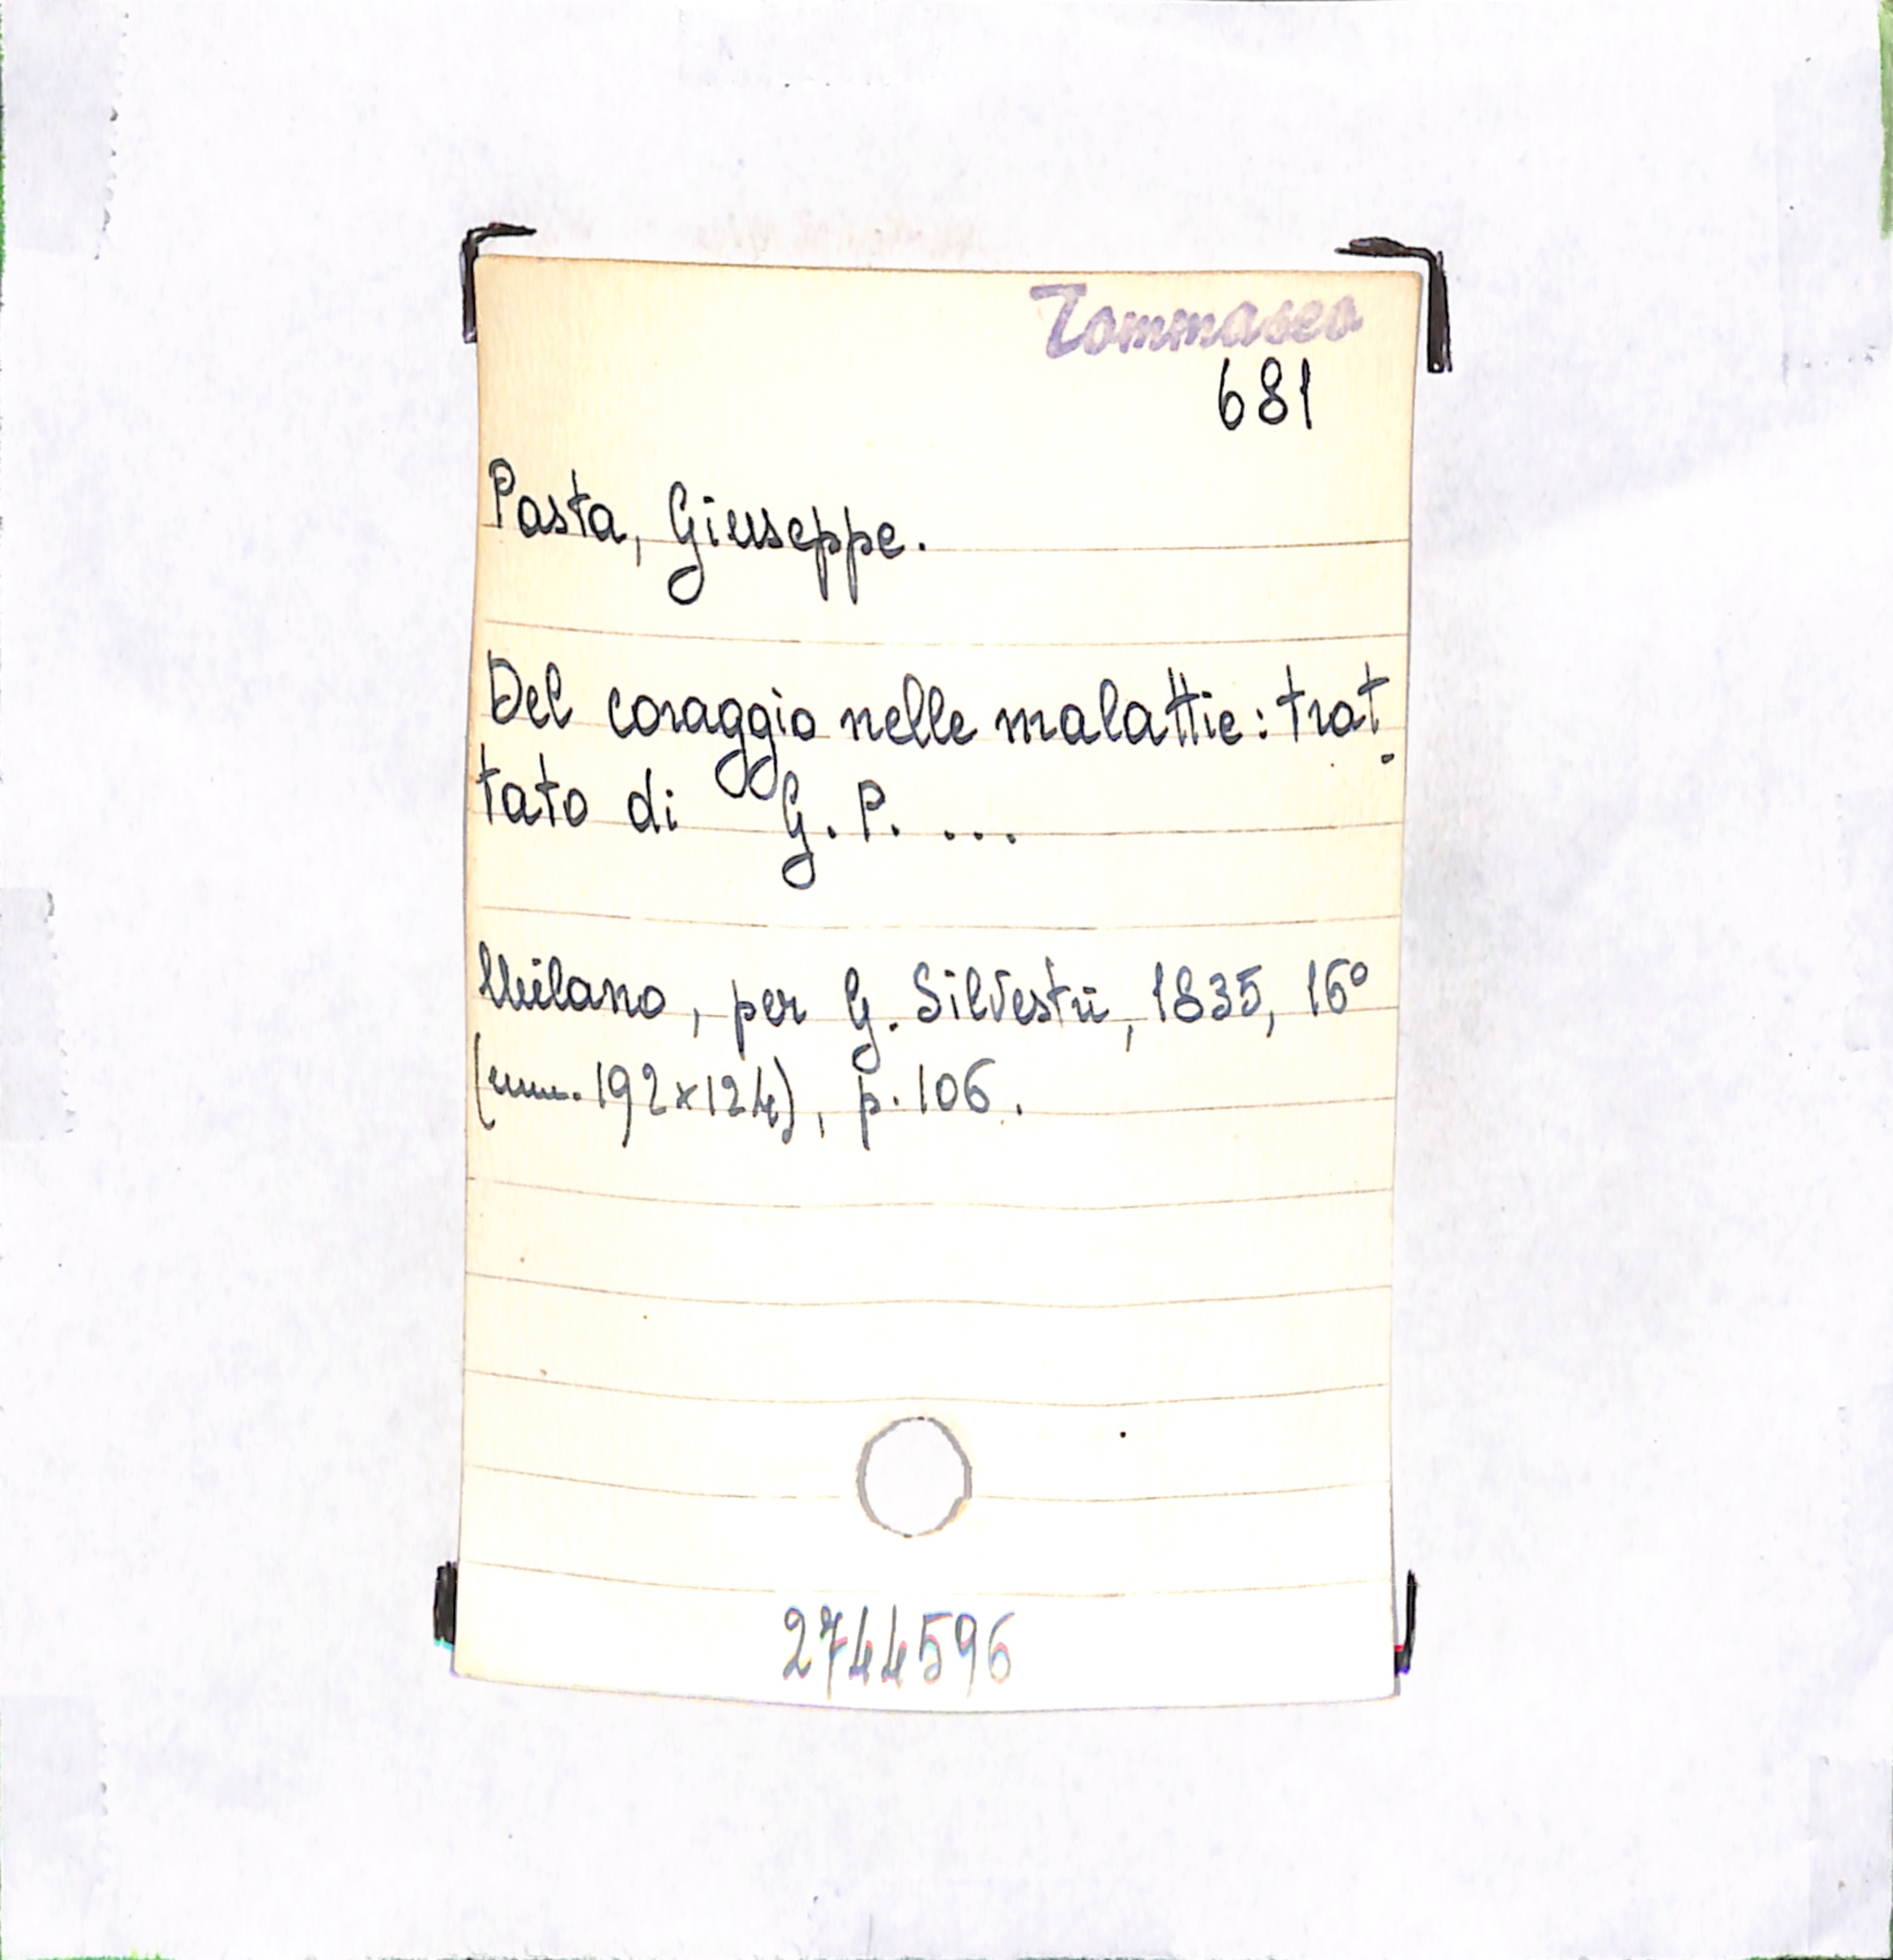 Tommaseo
681
Pasta, Giuseppe.
Del coraggio nelle malattie: trat
tato di G. P. ...
Milano, per G. Silvestri, 1835, 16°
(mm. 192x124), p. 106.
2744596